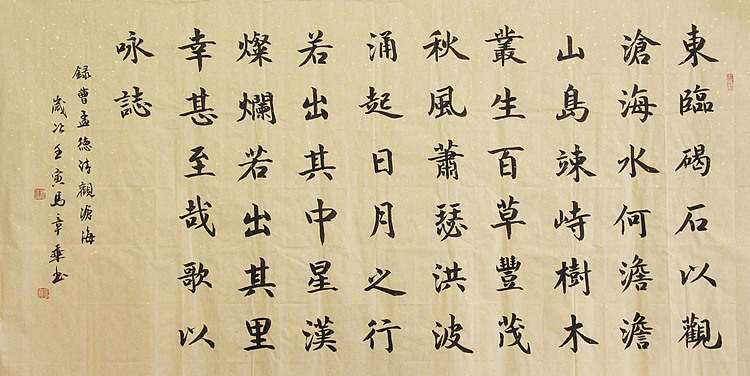 東臨碣石以觀
滄海水何澹澹
山島竦峙樹木
叢生百草豐茂
秋風蕭瑟洪波
涌起日月之行
若出其中星漢
燦爛若出其里
幸甚至哉歌以
咏誌
録曹孟德诗觀滄海
歲次壬寅馬章书